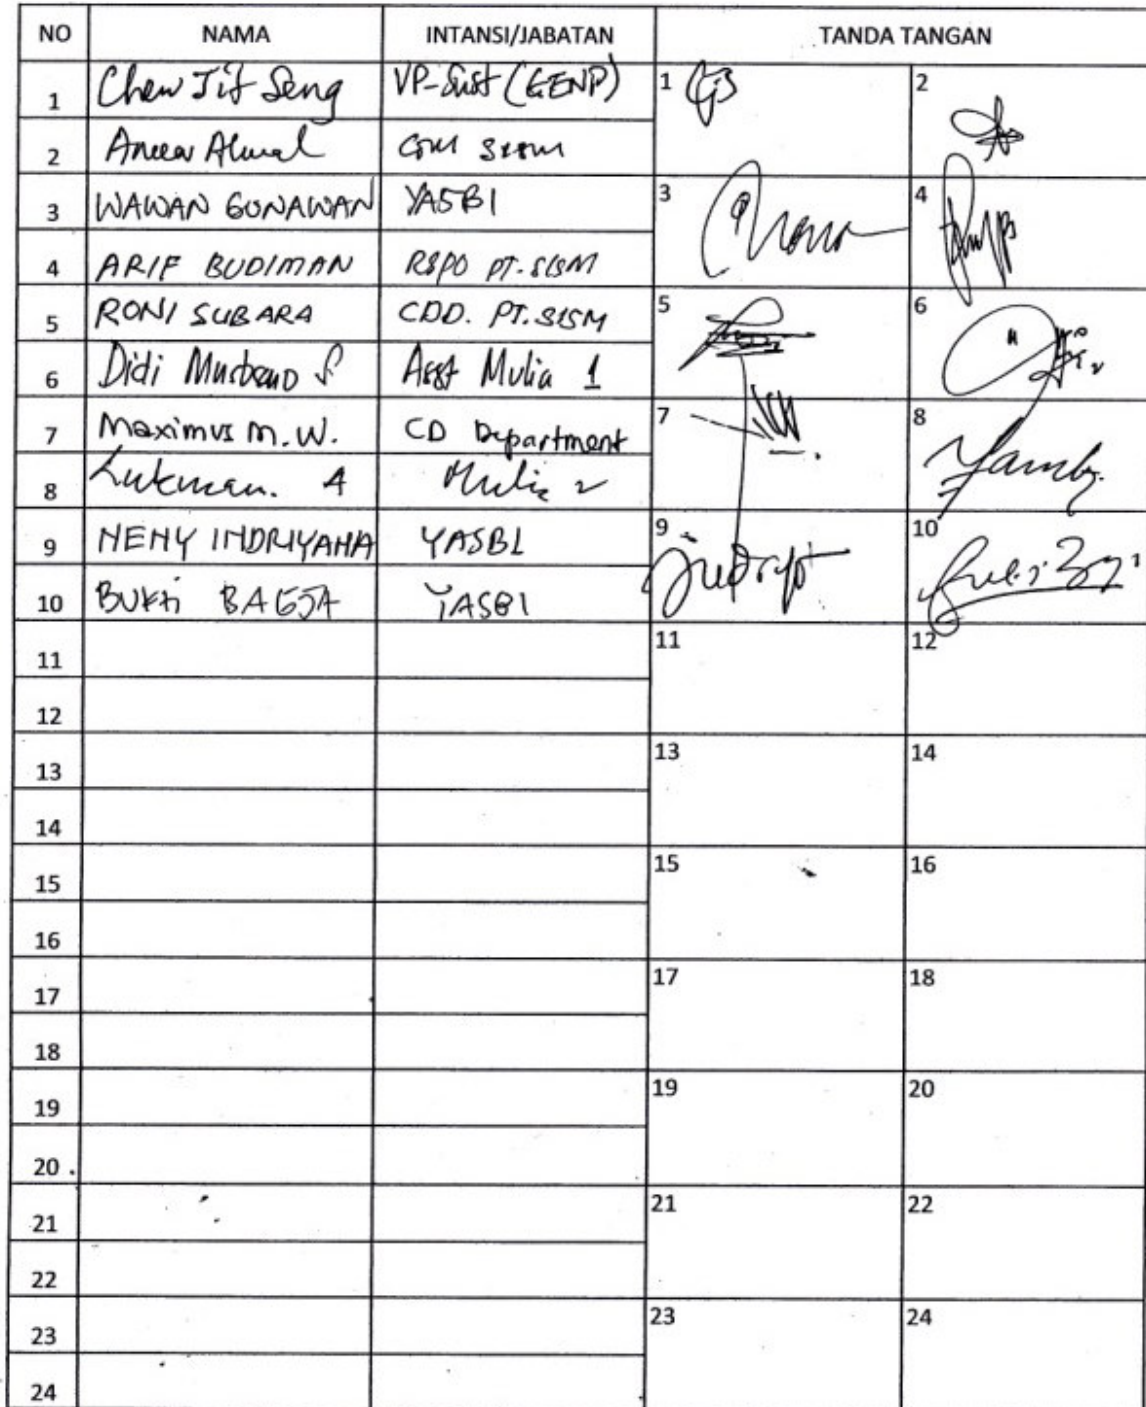 NO NAMA INTANSI/JABATAN TANDA TANGAN
1 Chew Jit Seng VP-Sust (GENP) 1 2
2 COM SISM
3 WAWAN GUNAWAN YASBI 3 4
4 ARIF BUDIMAN RSPO PT-SISM
5 RONI SUBARA CDD. PT.SISM 5 6
6 Didi S Asst Mulia 1
7 Maximus M.W. CD Department 7 8
8 Lukman. A Mulia 2
9 NENY INDRIYANA YASBI 9 10
10 BUKTI BAGJA YASBI
11 11 12
12
13 13 14
14
15 15 16
16
17 17 18
18
19 19 20
20
21 21 22
22
23 23 24
24